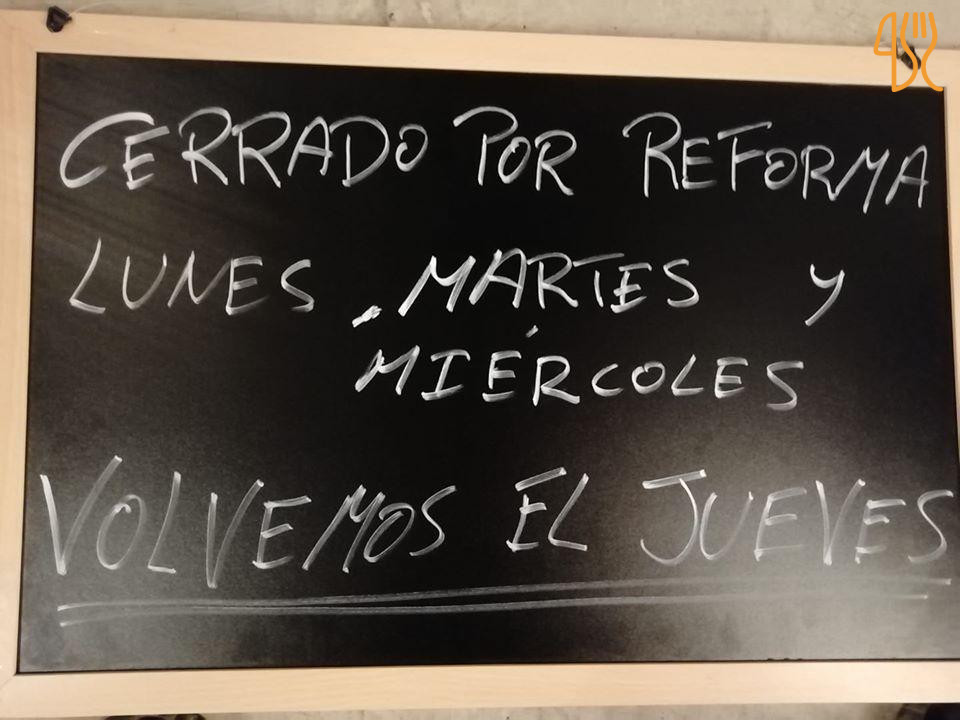 CERRADO POR REFORMA
LUNES, MARTES Y
MIÉRCOLES
VOLVEMOS EL JUEVES